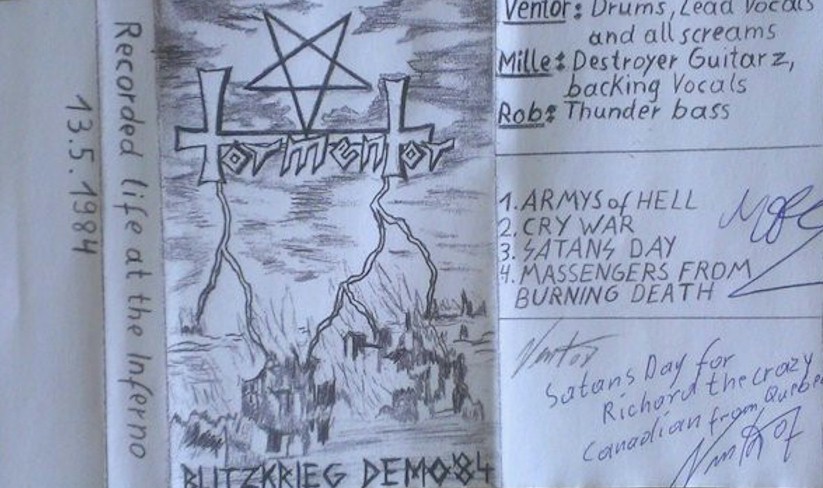 13.5.1984
Recorded life at the Inferno
Tormentor
BLITZKRIEG DEMO'84
Ventor: Drums, Lead Vocals
and all screams
Mille: Destroyer Guitarz,
backing Vocals
Rob: Thunder bass
1. ARMYS of HELL
2. CRY WAR
3. SATANS DAY
4. MASSENGERS FROM
BURNING DEATH
Ventor
Satans Day for
Richard the crazy
Canadian from Quebec